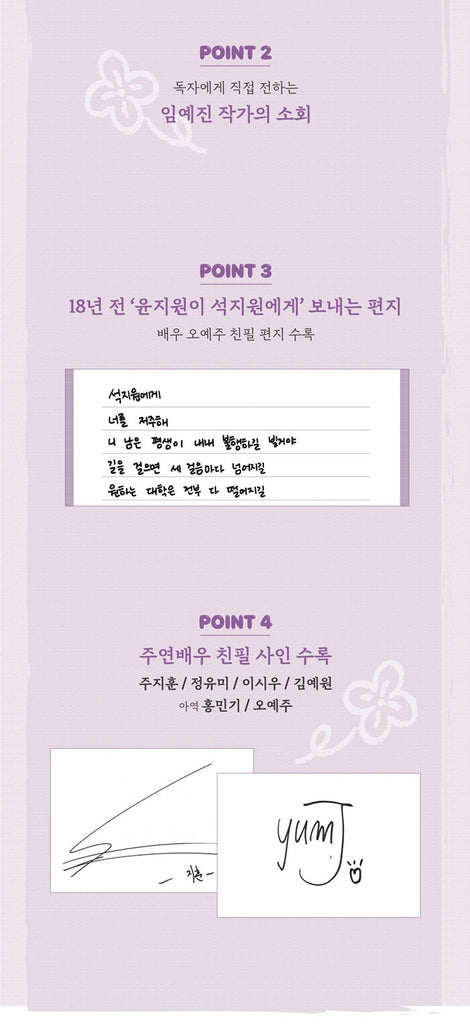 POINT 2
독자에게 직접 전하는
임예진 작가의 소회
POINT 3
18년 전 ‘윤지원이 석지원에게’ 보내는 편지
배우 오예주 친필 편지 수록
석지원에게
너를 저주해
니 남은 평생이 내내 불행하길 빌거야
길을 걸으면 세 걸음마다 넘어지길
원하는 대학은 전부 다 떨어지길
POINT 4
주연배우 친필 사인 수록
주지훈 / 정유미 / 이시우 / 김예원
아역 홍민기 / 오예주
– 지훈 –
yumJ